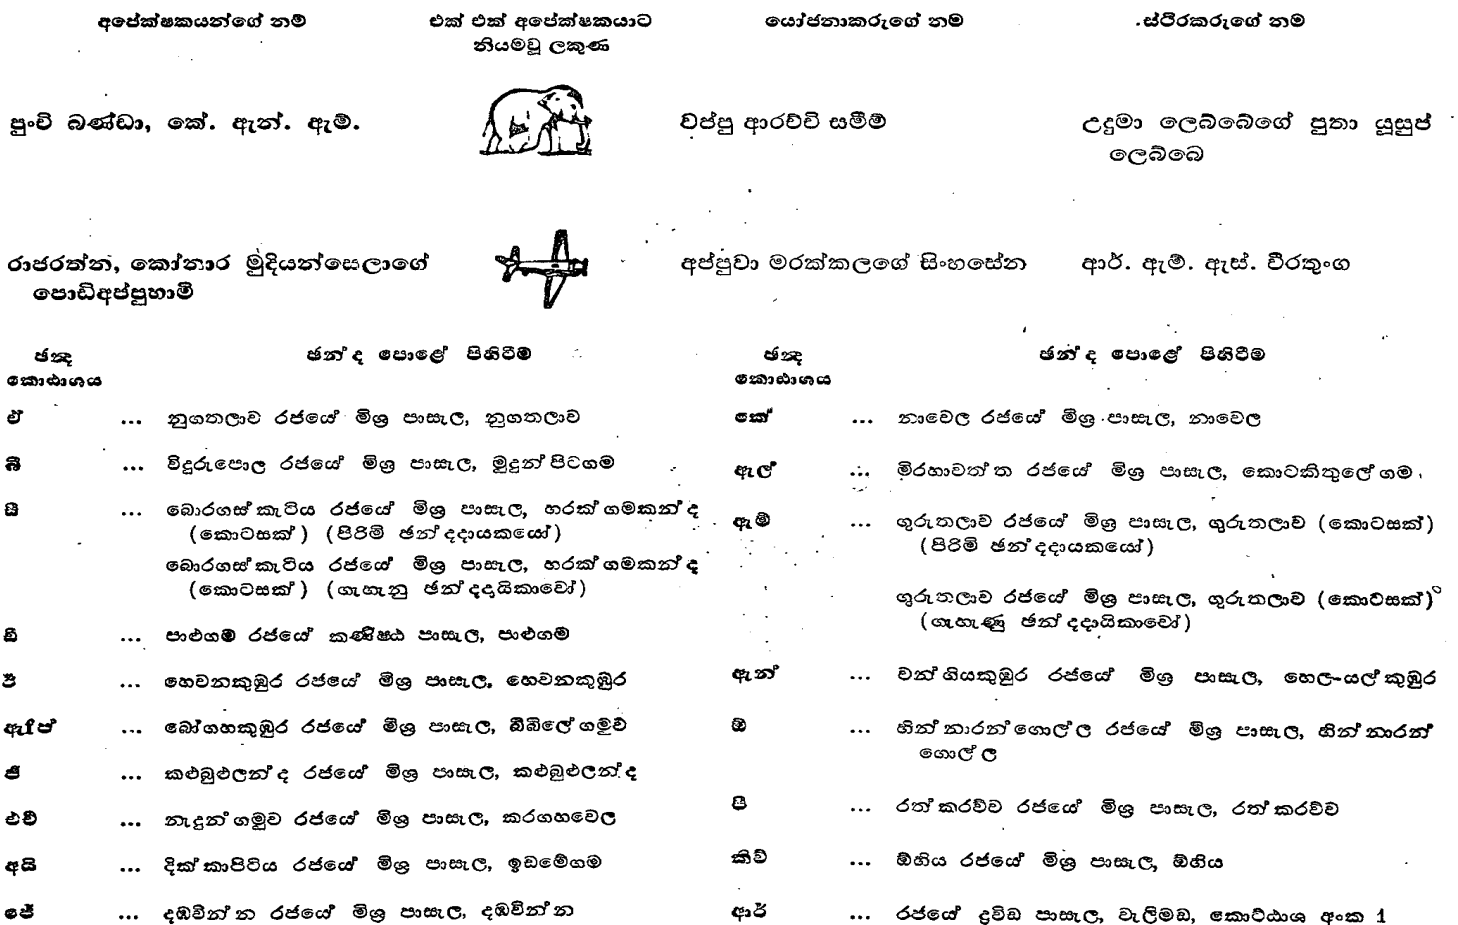 අපේක්ෂකයන්ගේ නම්
එක් එක් අපේක්ෂකයාට
නියමවූ ලකුණ
යෝජනාකරුගේ නම
ස්ථිරකරුගේ නම
පුංචි බණ්ඩා, කේ. ඇන්. ඇම්.
වප්පු ආරච්චි සමීම්
උදුමා ලෙබ්බේගේ පුතා යූසුප්
ලෙබ්බෙ
රාජරත්න, කෝනාර මුදියන්සෙලාගේ
පොඩිඅප්පුහාමි
අප්පුවා මරක්කලගේ සිංහසේන
ආර්. ඇම්. ඇස්. වීරතුංග
ඡන්ද
කොඨාශය
ඡන්ද පොළේ පිහිටීම
ඒ ... නුගතලාව රජයේ මිශ්‍ර පාසැල, නුගතලාව
බී ... විදුරුපොල රජයේ මිශ්‍ර පාසැල, මුදුන්පිටගම
සී ... බොරගස්කැටිය රජයේ මිශ්‍ර පාසැල, හරක්ගමකන්ද
(කොටසක්) (පිරිමි ඡන්දදායකයෝ)
බොරගස්කැටිය රජයේ මිශ්‍ර පාසැල, හරක්ගමකන්ද
(කොටසක්) (ගැහැනු ඡන්දදායිකාවෝ)
ඩී ... පාළුගම රජයේ කණිෂ්ඨ පාසැල, පාළුගම
ඊ ... හෙවනකුඹුර රජයේ මිශ්‍ර පාසැල, හෙවනකුඹුර
ඇෆ් ... බෝගහකුඹුර රජයේ මිශ්‍ර පාසැල, බිබිලේගමුව
ජී ... කළුබුළුලන්ද රජයේ මිශ්‍ර පාසැල, කළුබුළුලන්ද
එච් ... නැදුන්ගමුව රජයේ මිශ්‍ර පාසැල, කරගහවෙල
අයි ... දික්කාපිටිය රජයේ මිශ්‍ර පාසැල, ඉඩමේගම
ජේ ... දඹවින්න රජයේ මිශ්‍ර පාසැල, දඹවින්න
ඡන්ද
කොඨාශය
ඡන්ද පොළේ පිහිටීම
කේ ... නාවෙල රජයේ මිශ්‍ර පාසැල, නාවෙල
ඇල් ... මිරහාවත්ත රජයේ මිශ්‍ර පාසැල, කොටකිතුලේගම
ඇම් ... ගුරුතලාව රජයේ මිශ්‍ර පාසැල, ගුරුතලාව (කොටසක්)
(පිරිමි ඡන්දදායකයෝ)
ගුරුතලාව රජයේ මිශ්‍ර පාසැල, ගුරුතලාව (කොටසක්)
(ගැහැණු ඡන්දදායිකාවෝ)
ඇන් ... වන්ගියකුඹුර රජයේ මිශ්‍ර පාසැල, හෙලයල්කුඹුර
ඕ ... හින්නාරන්ගොල්ල රජයේ මිශ්‍ර පාසැල, හින්නාරන්
ගොල්ල
පී ... රත්කරව්ව රජයේ මිශ්‍ර පාසැල, රත්කරව්ව
කිව් ... ඕහිය රජයේ මිශ්‍ර පාසැල, ඕහිය
ආර් ... රජයේ ද්‍රවිඩ පාසැල, වැලිමඩ, කොට්ඨාශ අංක 1